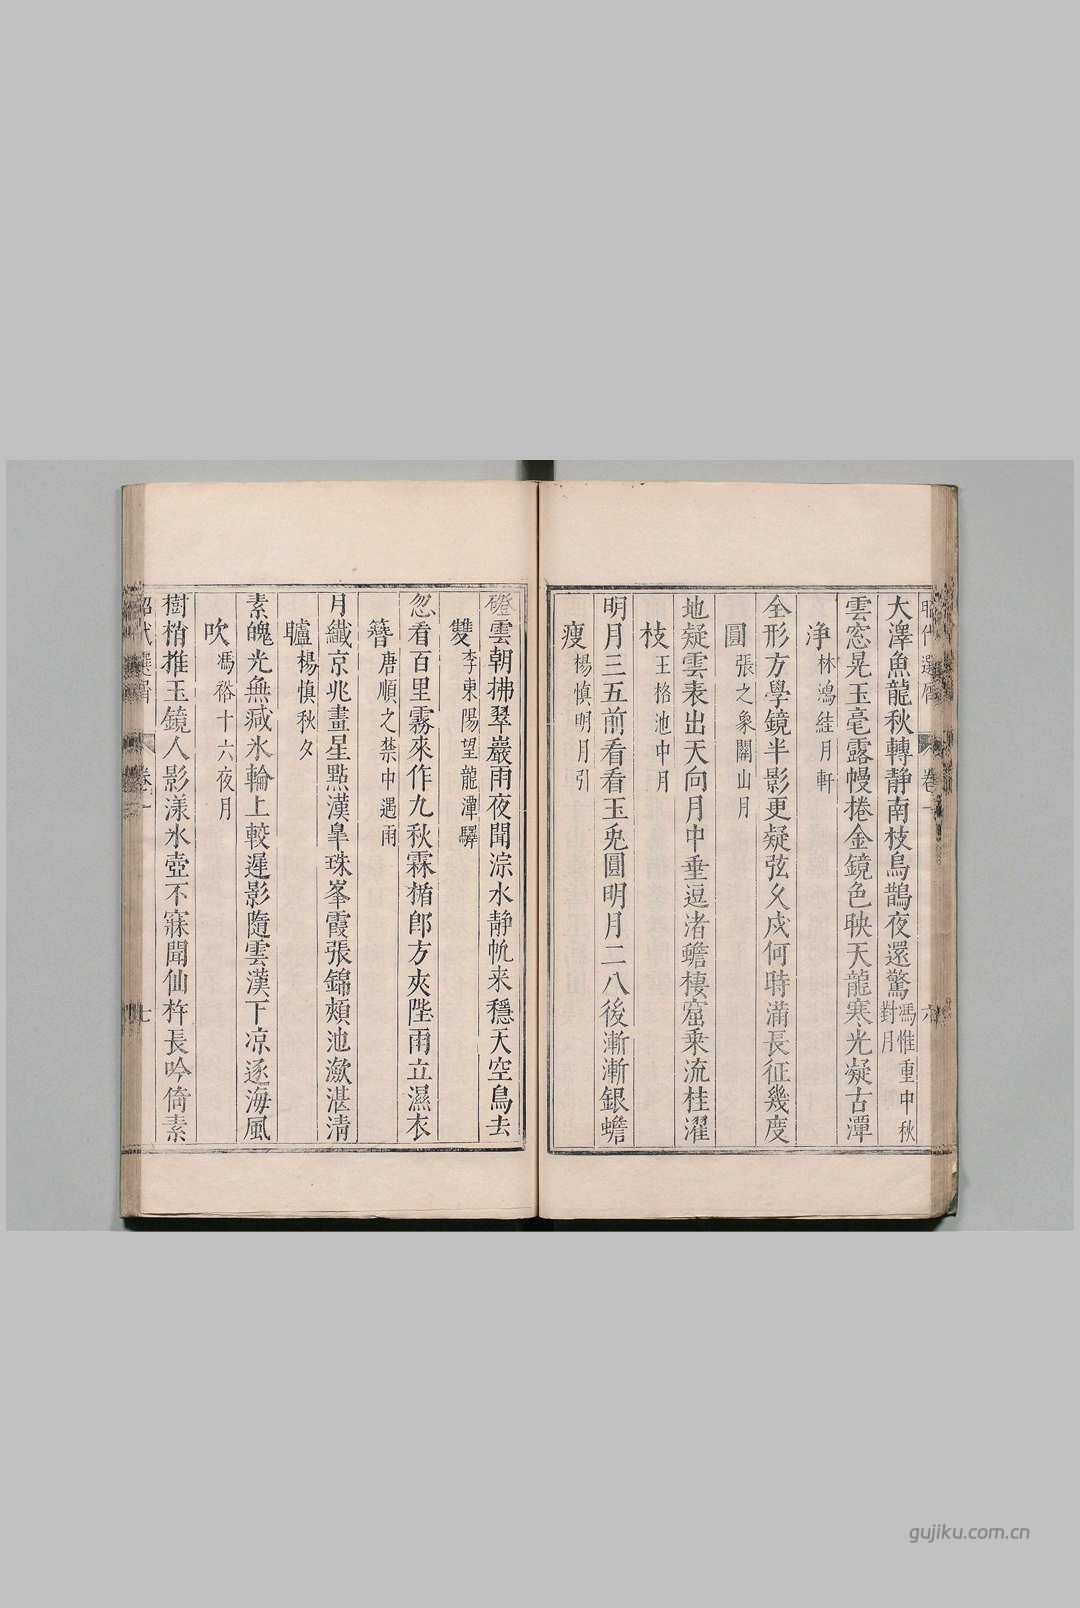 昭代選屑 卷一 六
大澤魚龍秋轉靜南枝烏鵲夜還驚馮惟重中秋對月
雲窓晃玉毫露幔捲金鏡色映天龍寒光凝古潭
淨林鴻絓月軒
全形方學鏡半影更疑弦久戍何時滿長征幾度
圓張之象關山月
地疑雲表出天向月中垂逗渚蟾棲窟乗流桂濯
枝王格池中月
明月三五前看看玉兎圓明月二八後漸漸銀蟾
瘦楊慎明月引
磴雲朝拂翠巖雨夜聞淙水静帆来穩天空鳥去
雙李東陽望龍潭驛
忽看百里霧來作九秋霖楯郎方夾陛雨立濕衣
簪唐順之禁中遇雨
月纎京兆畫星點漢臯珠峯霞張錦頰池瀲湛清
矑楊慎秋夕
素魄光無减氷輪上較遲影隨雲漢下凉逐海風
吹馮裕十六夜月
樹梢推玉鏡人影漾氷壺不寐聞仙杵長吟倚素
昭代選屑 卷一 七
gujiku.com.cn